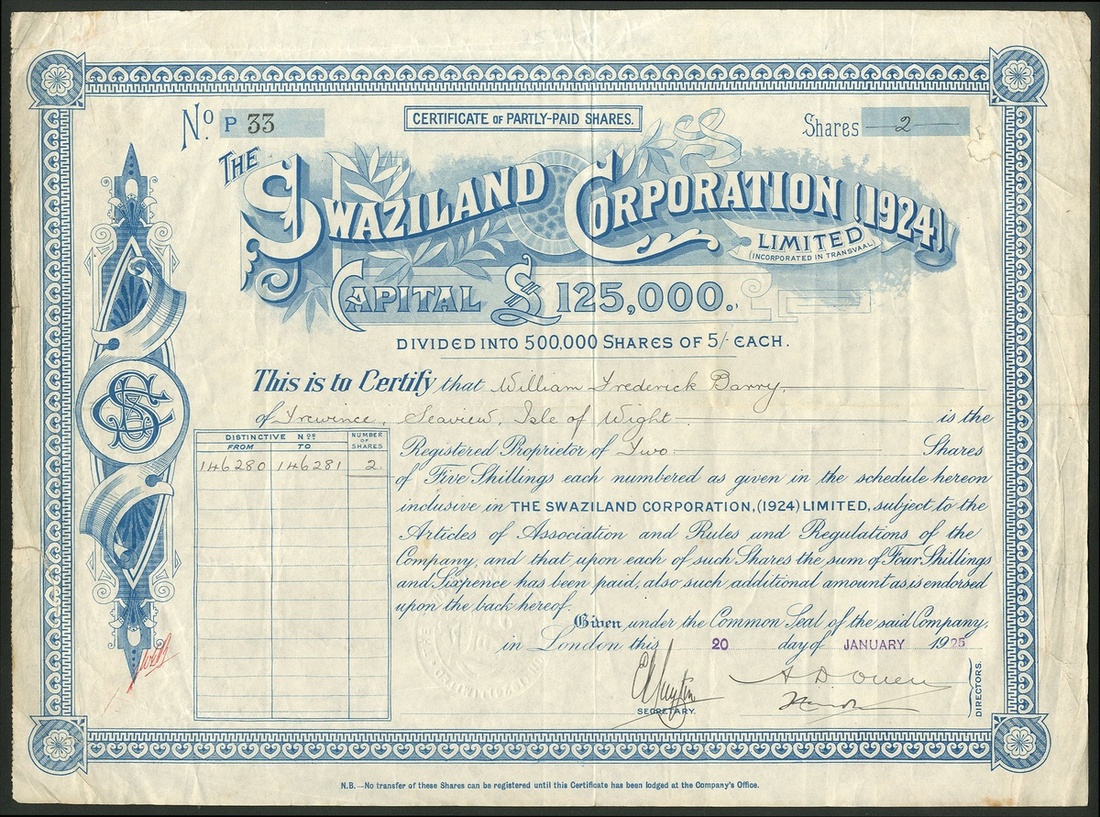 No. P 33
CERTIFICATE OF PARTLY-PAID SHARES.
Shares 2
THE SWAZILAND CORPORATION (1924)
LIMITED
(INCORPORATED IN TRANSVAAL)
CAPITAL £125,000.
DIVIDED INTO 500,000 SHARES OF 5/- EACH.
This is to Certify that William Frederick Barry.
of Trewince, Seaview, Isle of Wight. is the
Registered Proprietor of Two. Shares
of Five Shillings each numbered as given in the schedule hereon
inclusive in THE SWAZILAND CORPORATION, (1924) LIMITED, subject to the
Articles of Association and Rules and Regulations of the
Company, and that upon each of such Shares the sum of Four Shillings
and Sixpence has been paid, also such additional amount as is endorsed
upon the back hereof.
Given under the Common Seal of the said Company,
in London this 20 day of JANUARY 1925
DISTINCTIVE Nos. NUMBER OF SHARES
FROM TO
146280 146281 2
SC
A D Owen
SECRETARY.
DIRECTORS.
N.B.—No transfer of these Shares can be registered until this Certificate has been lodged at the Company's Office.